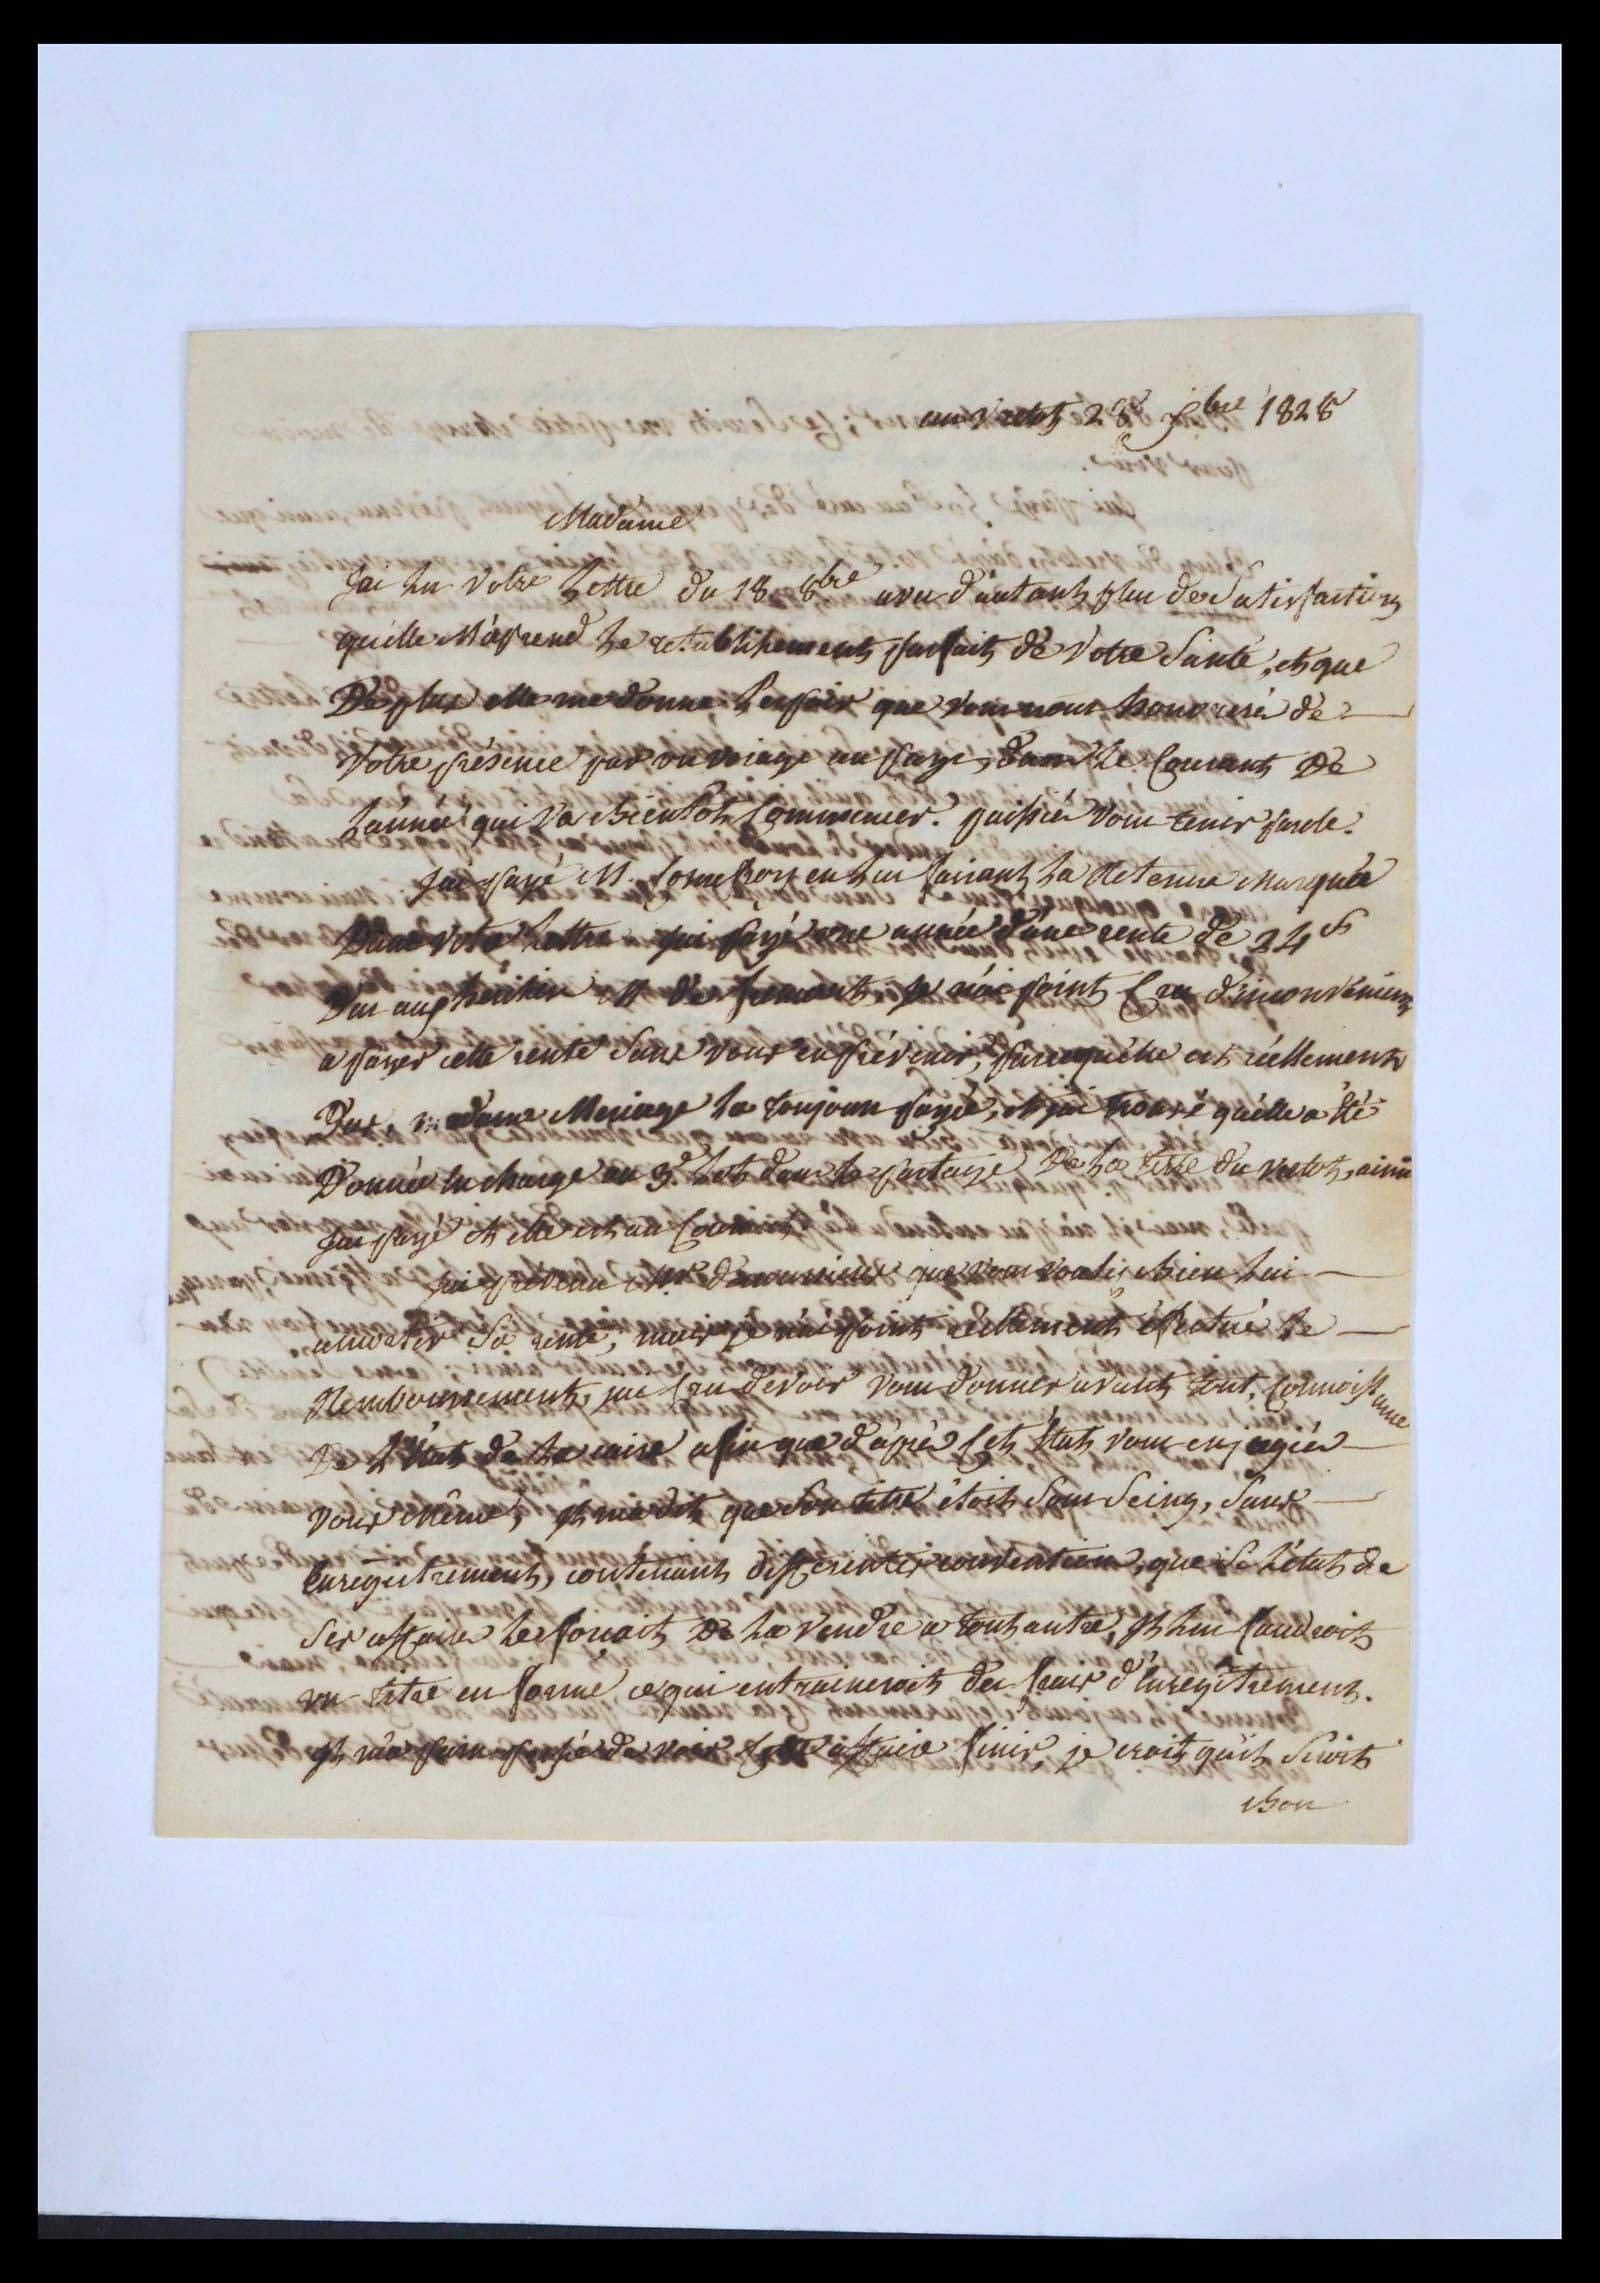 au vretot 28 9bre 1828
Madame
J'ai lu votre lettre du 18 8bre avec d'autant plus de satisfaction
qu'elle m'aprend le retablissement parfait de votre santé, et que
De plus elle me donne l'espoir que vous nous honorerés de
votre présence par un voiage au pays, dans le courant De
l'année qui va bientôt commencer. puissiés vous tenir parole.
j'ai payé M. en lui faisant la Retenue marquée
Dans votre lettre j'ai payé une année d'une rente de 24 f
Due aux heritier M de je n'ai point cru d'inconvenient
a payer cette rente sans vous en prévenir, parcequ'elle est réellement
Due, madame Mariage l'a toujours payée, et j'ai trouvé qu'elle a été
Donnée en charge au 3e lot dans le partage De la terre du vretot, ainsi
j'ai payé et elle est au Courant
j'ai prevenu Mr que vous vouliés bien lui
amortir sa rente, mais je n'ai point réellement éffectué le
Remboursement, j'ai cru devoir vous donner avant tout, connoissance
De l'État de la caise afin que d'après cet état vous en jugiés
vous même, il m'a dit que son titre étoit sous seing, sans
Enregistrement, contenant differentes conventions, que si l'état de
ses affaires le forçait De la vendre a tout autre, il lui faudroit
un titre en forme, ce qui entraineroit des frais d'Enregistrement.
il n'a pas de voir cette affaire finir, je crois qu'il seroit
bon